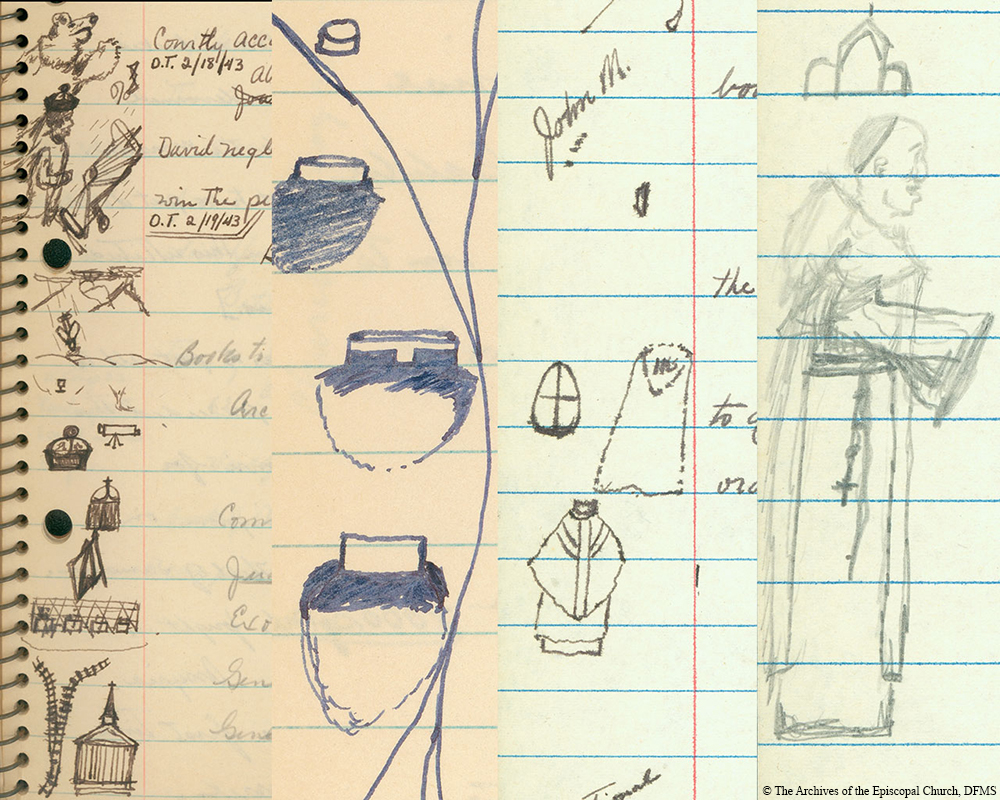 Courtly acc
O.T. 2/18/43
Al
David negl
win the pe
O.T. 2/19/43
Books t
Arc
Com
Ju
Exo
Gen
Gen
John M.
bo
the
m
to g
ord
Tional
© The Archives of the Episcopal Church, DFMS